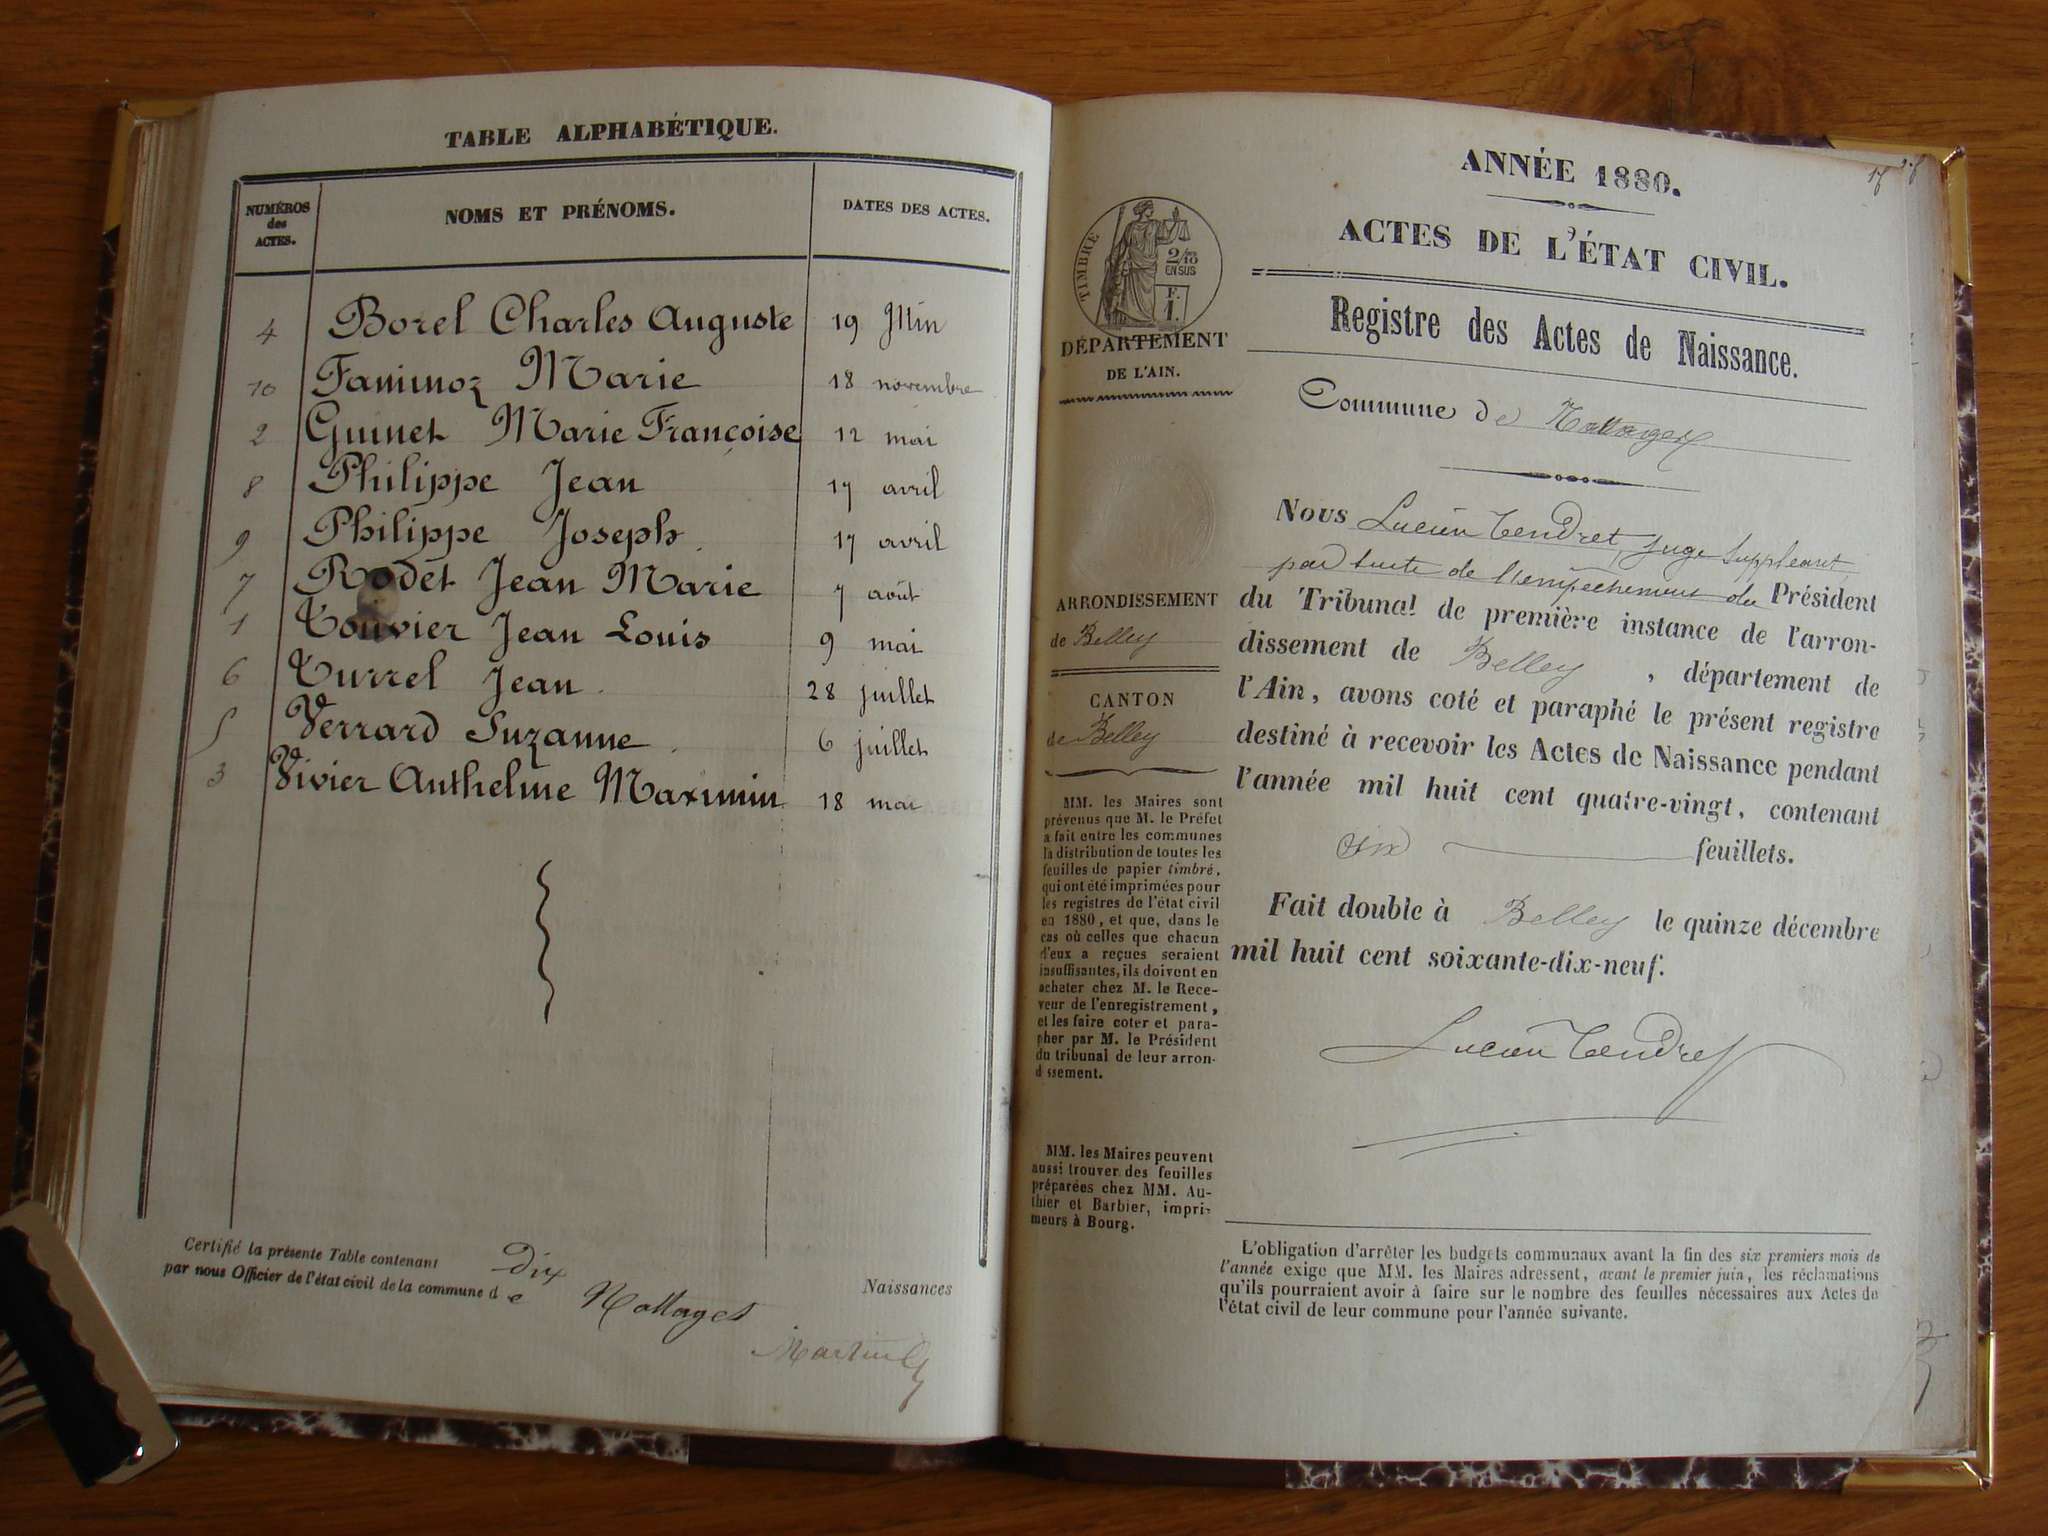 TABLE ALPHABÉTIQUE.
NUMÉROS des ACTES. NOMS ET PRÉNOMS. DATES DES ACTES.
4 Borel Charles Auguste 19 Juin
10 Marie 18 novembre
2 Guinet Marie Françoise 12 mai
8 Philippe Jean 17 avril
9 Philippe Joseph 17 avril
7 Rodet Jean Marie 7 août
1 Touvier Jean Louis 9 mai
6 Turrel Jean 28 juillet
5 Verrard Suzanne 6 juillet
3 Vivier Anthelme Maximin 18 mai
Certifié la présente Table contenant dix Naissances
par nous Officier de l'état civil de la commune de Nattages
ANNÉE 1880.
ACTES DE L'ÉTAT CIVIL.
Registre des Actes de Naissance.
TIMBRE
2/10
EN SUS
F.
1.
DÉPARTEMENT
DE L'AIN.
ARRONDISSEMENT
de Belley
CANTON
de Belley
MM. les Maires sont
prévenus que M. le Préfet
a fait entre les communes
la distribution de toutes les
feuilles de papier timbré,
qui ont été imprimées pour
les registres de l'état civil
en 1880, et que, dans le
cas où celles que chacun
d'eux a reçues seraient
insuffisantes, ils doivent en
acheter chez M. le Rece-
veur de l'enregistrement,
et les faire coter et para-
pher par M. le Président
du tribunal de leur arron-
dissement.
MM. les Maires peuvent
aussi trouver des feuilles
préparées chez MM. Au-
thier et Barbier, impri-
meurs à Bourg.
Commune de Nattages
Nous Lucien Tendret, juge Suppléant,
par suite de l'empêchement du Président
du Tribunal de première instance de l'arron-
dissement de Belley, département de
l'Ain, avons coté et paraphé le présent registre
destiné à recevoir les Actes de Naissance pendant
l'année mil huit cent quatre-vingt, contenant
six feuillets.
Fait double à Belley le quinze décembre
mil huit cent soixante-dix-neuf.
Lucien Tendret
L'obligation d'arrêter les budgets communaux avant la fin des six premiers mois de
l'année exige que MM. les Maires adressent, avant le premier juin, les réclamations
qu'ils pourraient avoir à faire sur le nombre des feuilles nécessaires aux Actes de
l'état civil de leur commune pour l'année suivante.